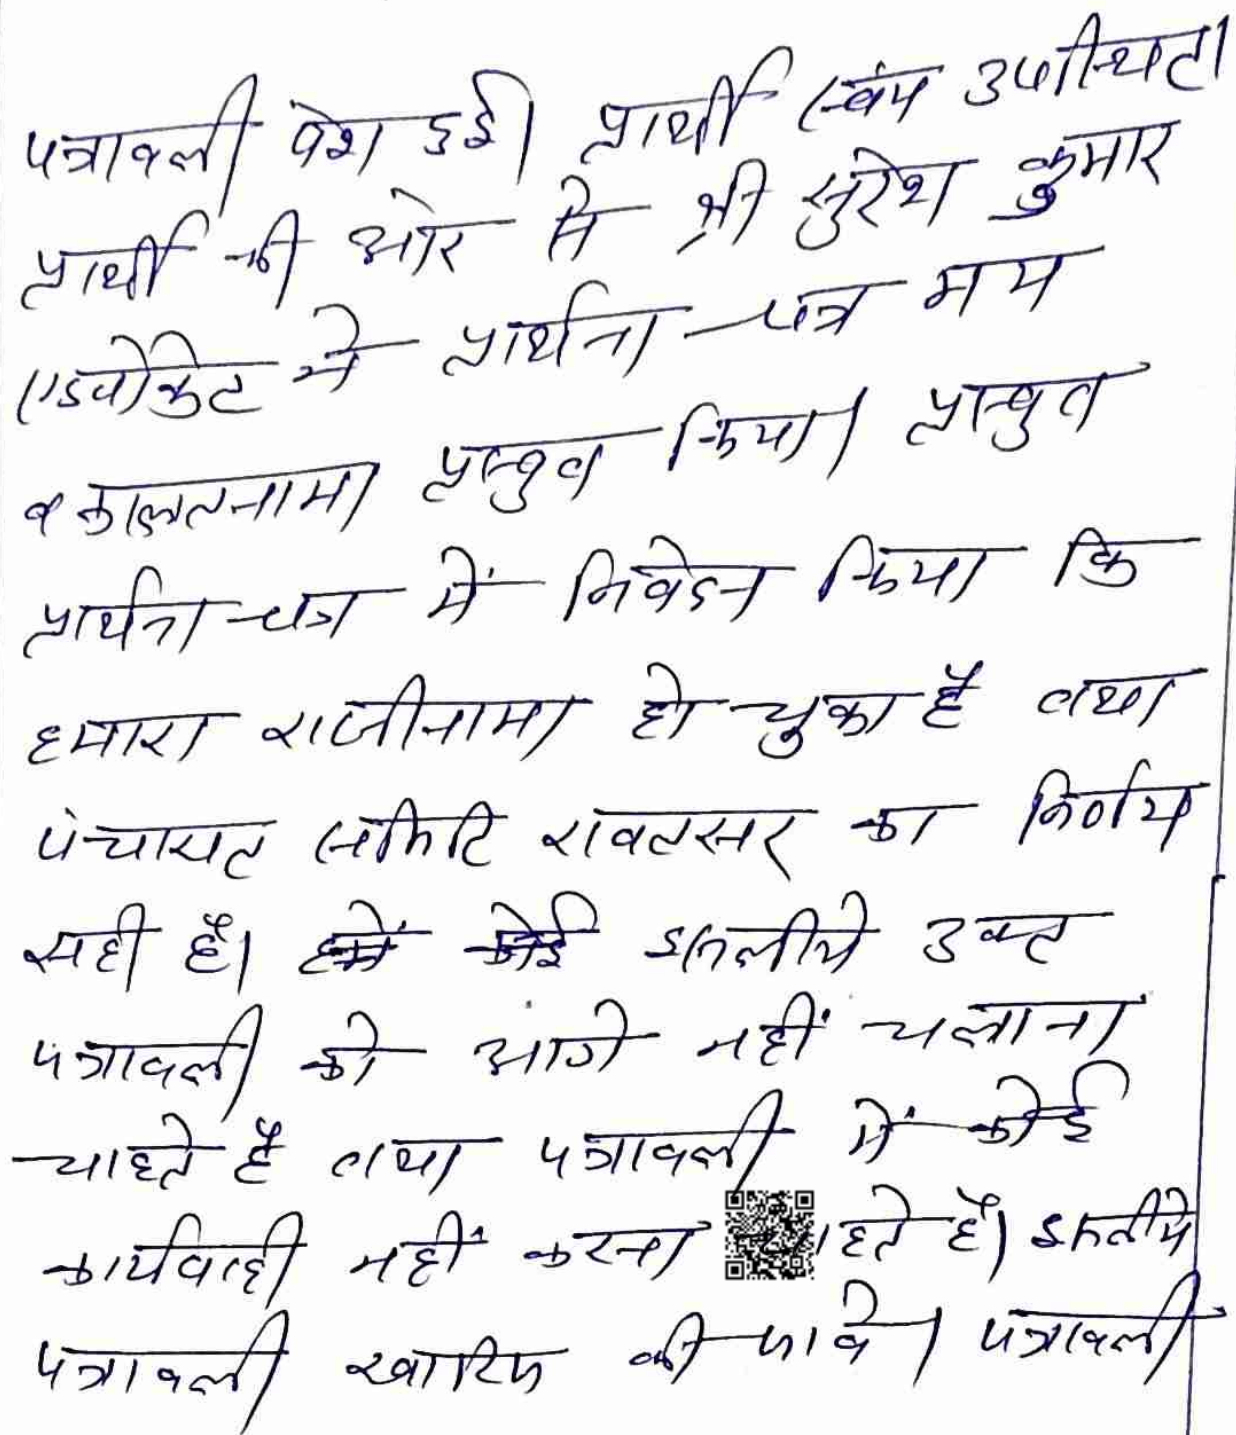 पत्रावली पेश हुई। प्रार्थी स्वंय उपस्थित।
प्रार्थी की ओर से श्री सुरेश कुमार
एडवोकेट ने प्रार्थना-पत्र मय
वकालतनामा प्रस्तुत किया। प्रस्तुत
प्रार्थना-पत्र में निवेदन किया कि
हमारा राजीनामा हो चुका है तथा
पंचायत समिति रावतसर का निर्णय
सही है। हमें कोई इसलीये उक्त
पत्रावली को आगे नहीं चलाना
चाहते है तथा पत्रावली में कोई
कार्यवाही नहीं करना चाहते है। इसलीये
पत्रावली खारिज की जावे। पत्रावली